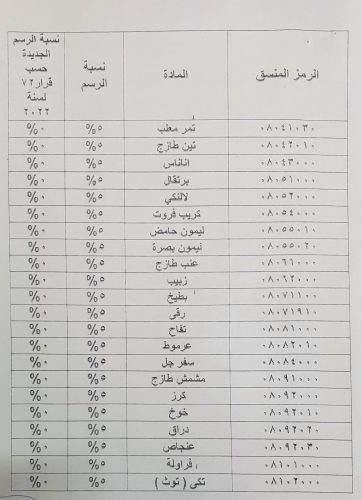 الرمز المنسق المادة نسبة الرسم نسبة الرسم الجديدة حسب قرار ٧٢ لسنة ٢٠٢٢
٠٨٠٤١٠٣٠ تمر معلب ٥% ٠%
٠٨٠٤٢٠١٠ تين طازج ٥% ٠%
٠٨٠٤٣٠٠٠ اناناس ٥% ٠%
٠٨٠٥١٠٠٠ برتقال ٥% ٠%
٠٨٠٥٢٠٠٠ لالنكي ٥% ٠%
٠٨٠٥٤٠٠٠ كريب فروت ٥% ٠%
٠٨٠٥٥٠١٠ ليمون حامض ٥% ٠%
٠٨٠٥٥٠٢٠ نيمون بصرة ٥% ٠%
٠٨٠٦١٠٠٠ عنب طازج ٥% ٠%
٠٨٠٦٢٠٠٠ زبيب ٥% ٠%
٠٨٠٧١١٠٠ بطيخ ٥% ٠%
٠٨٠٧١٩١٠ رقى ٥% ٠%
٠٨٠٨١٠٠٠ تفاح ٥% ٠%
٠٨٠٨٢٠١٠ عرموط ٥% ٠%
٠٨٠٨٤٠٠٠ سفر جل ٥% ٠%
٠٨٠٩١٠٠٠ مشمش طازج ٥% ٠%
٠٨٠٩٢٠٠٠ كرز ٥% ٠%
٠٨٠٩٢٠١٠ خوخ ٥% ٠%
٠٨٠٩٢٠٢٠ دراق ٥% ٠%
٠٨٠٩٢٠٣٠ عنجاص ٥% ٠%
٠٨١٠١٠٠٠ فراولة ٥% ٠%
٠٨١٠٢٠٠٠ تكى ( توث ) ٥% ٠%